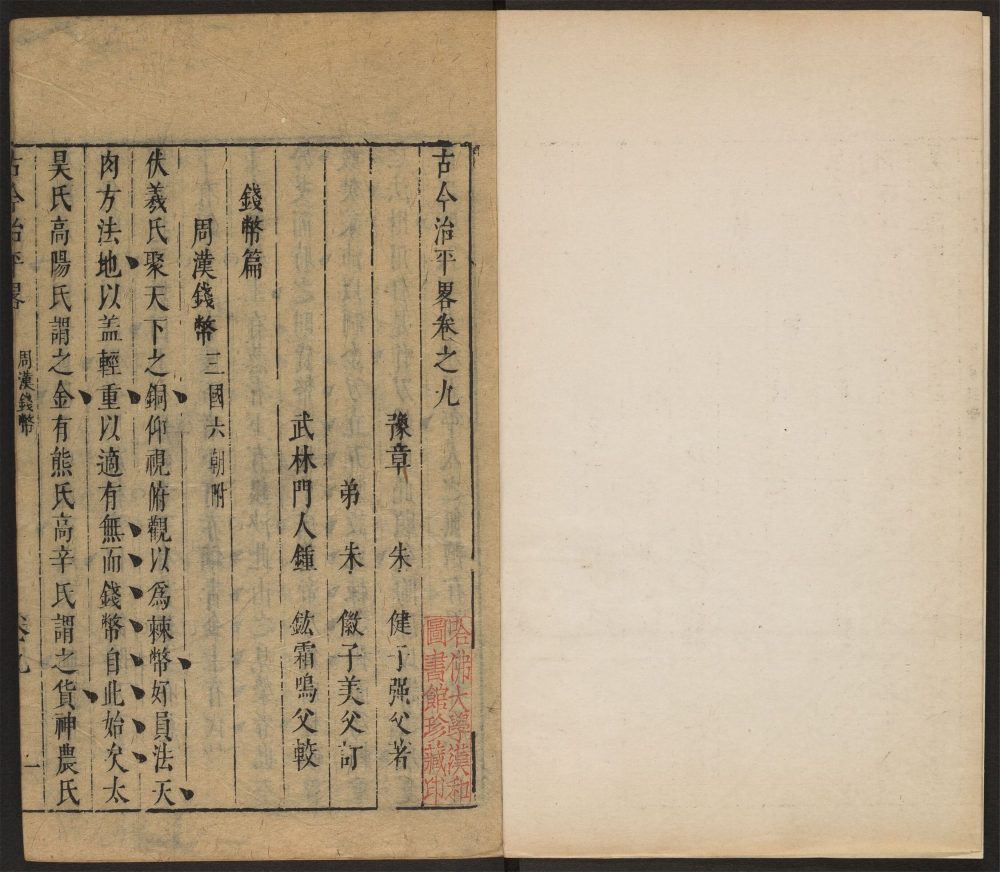 古今治平畧卷之九
豫章 朱 健子强父著
弟 朱 徽子美父訂
武林門人鍾 鋐霜鳴父較
錢幣篇
周漢錢幣三國六朝附
伏羲氏聚天下之銅仰視俯觀以爲棘幣好員法天
肉方法地以盖輕重以適有無而錢幣自此始矣太
昊氏高陽氏謂之金有熊氏高辛氏謂之貨神農氏
古今治平畧 周漢錢幣 卷九 一
哈佛大學漢和
圖書館珍藏印